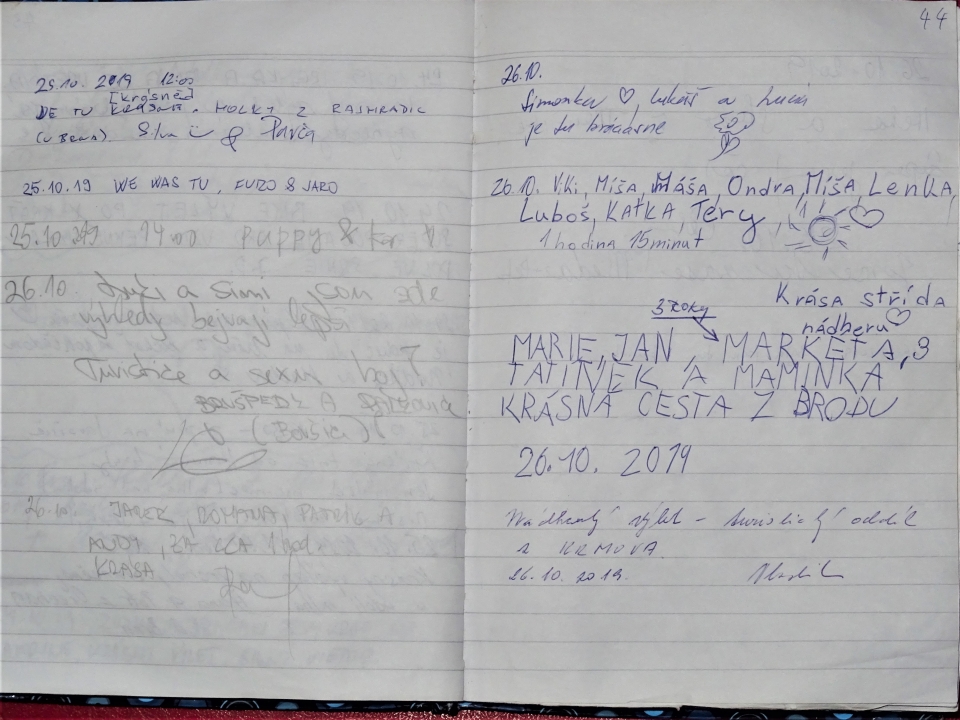 25.10. 2019 12:05
[krásně]
DE TU KRÁSNĚ. HOLKY Z RAJHRADIC
(U BRNA) & Pavla
25.10.19 WE WAS TU, EURO & JARO
25.10 2019 14:00 puppy &
26.10. a Simi jsou zde
výhledy bejvaj lepší
Turistice a sexu
BOUŠPEDZ A
(Bouška)
26.10. JAREK, ROMANA, PATRIK A
ANDY, ZA CCA 1 hod.
KRÁSA
44
26.10.
Simonka ♡, Lukáš a Lucia
je tu krááásne
26.10. Viki, Míša, Máša, Ondra, Míša, Lenka,
Luboš, KAŤKA, Téry
1 hodina 15 minut
Krása střídá
nádheru ♡
3 roky
MARIE, JAN, MARKÉTA, 3
TATÍNEK A MAMINKA
KRÁSNÁ CESTA Z BRODU
26.10. 2019
Nádherný výlet – turistický oddíl
z KRMOVA.
26.10.2019.